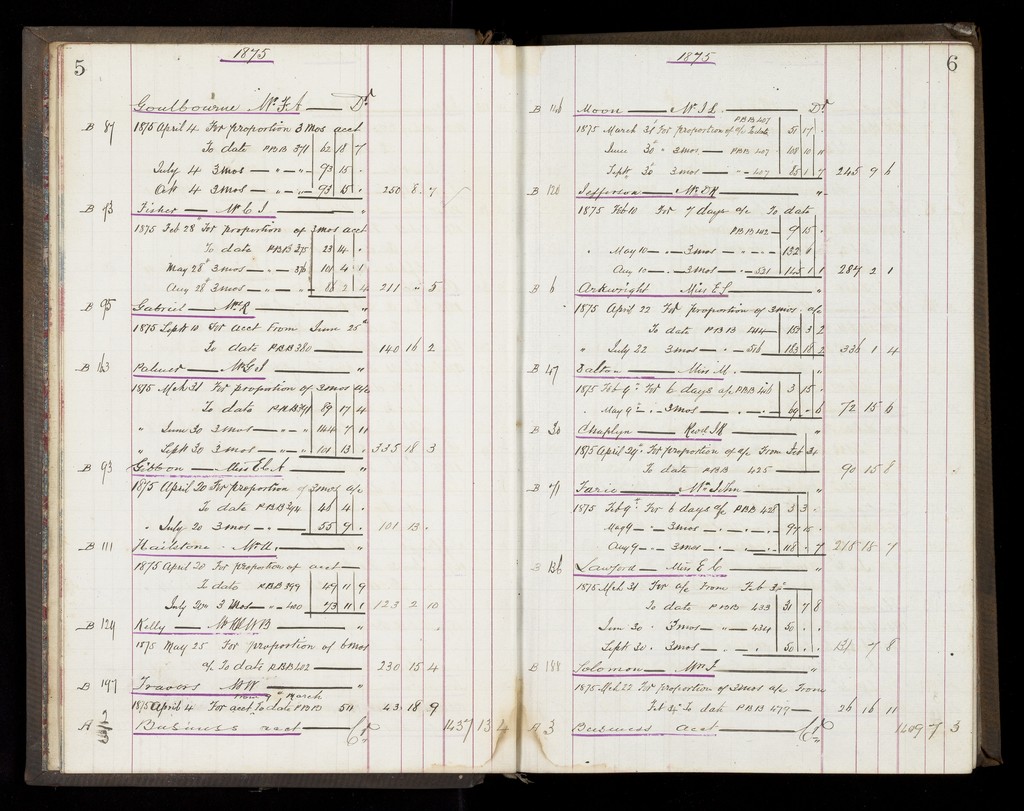 5
1875
Goulbourne Mr F A Dr
B 87 1875 April 4 For proportion 3 Mos acct
To date PBB 371 62 18 7
July 4 3 mos 93 15 .
Oct 4 3 mos 93 15 . 250 8 7
B 93 Fisher Mr C I "
1875 Feb 28 For proportion of 3 mos acct
To date PBB 375 23 14 .
May 28 3 mos 376 101 4 1
Aug 28 3 mos 86 2 4 211 " 5
B 95 Gabriel R "
1875 Sept 10 For acct From June 25
To date PBB 380 140 16 2
B 163 Palmer Mr G I "
1875 Mch 31 For proportion of 3 mos a/c
To date PBB 89 17 4
" June 30 3 mos " " 144 7 11
" Sept 30 3 mos " " 101 13 . 335 18 3
B 93 Gibbon Miss E L A "
1875 April 20 For proportion of 3 mos a/c
To date PBB 394 46 4 .
" July 20 3 mos 55 9 . 101 13 .
B 111 Hailstone Mr "
1875 April 20 For proportion of acct
To date PBB 399 49 11 9
July 20 3 Mos " 400 73 11 1 123 2 10
B 124 Kelly W B "
1875 May 25 For proportion of 6 mos
a/c To date PBB 402 230 15 4
B 197 Travers Mr W "
From 9 March
1875 April 4 For acct To date PBB 511 43 18 9
A Business acct Cr 1437 13 4
6
1875
B 146 Moon Mr I L Dr
PBB 407
1875 March 31 For proportion of a/c To date 51 17 .
June 30 " 3 mos PBB 407 108 10 11
Sept 30 3 mos 407 85 1 7 245 9 6
B 120 Jefferson Mr "
1875 Feb 10 For 7 days a/c To date
PBB 402 9 15 .
" May 10 3 mos 132 6 .
Aug 10 3 mos 531 145 1 1 287 2 1
B 6 Arkwright Miss E S "
1875 April 22 For proportion of 3 mos a/c
To date PBB 414 153 3 2
" July 22 3 mos 516 183 18 2 336 1 4
B 47 Dalton Miss M. "
1875 Feb 9 For 6 days a/c PBB 416 3 15 .
" May 9 3 mos 69 . 6 72 15 6
B 30 Chaplyn Revd "
1875 April 24 For proportion of a/c From Feb 3
To date PBB 425 90 15 8
B 71 Farie Mr John "
1875 Feb 9 For 6 days a/c PBB 428 3 3 .
May 9 3 mos 97 15 .
Aug 9 3 mos 118 . 7 218 18 7
B 136 Lawford Miss E C "
1875 Mch 31 For a/c From Feb 3
To date PBB 433 31 7 8
June 30 3 mos 434 50 . .
Sept 30 3 mos 50 . . 131 7 8
B 188 Solomon I "
1875 Mch 22 For proportion of 3 mos a/c From
Feb 3 To date PBB 479 26 16 11
A 3 Business acct Cr 1409 7 3